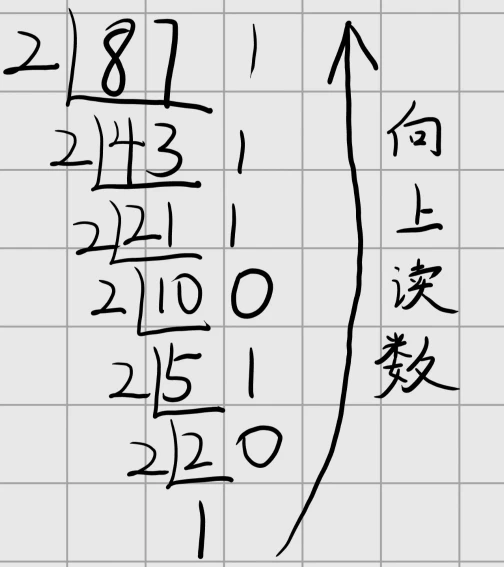 2 87 1
2 43 1
2 21 1
2 10 0
2 5 1
2 2 0
1
向上读数